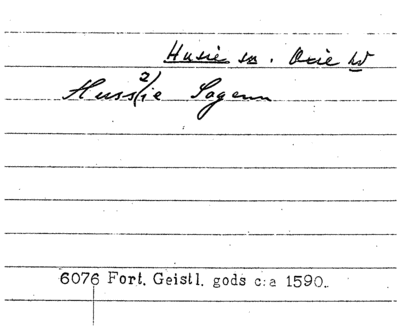 Husie sn. Oxie hd
2)
Huss/ie Sogenn
6076 Fort. Geistl. gods c:a 1590.